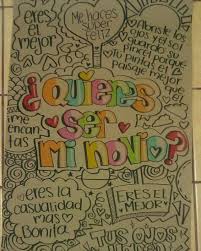 eres
el mejor
Me haces
super
feliz
Abriste los
ojos y el sol
guardo su
pincel porque
tu pintas el
paisaje mejor
que el
¿Quieres
ser
mi novio?
me
encan
tas
eres la
casualidad
mas
Bonita
ERES EL
MEJOR
TUS OJOS